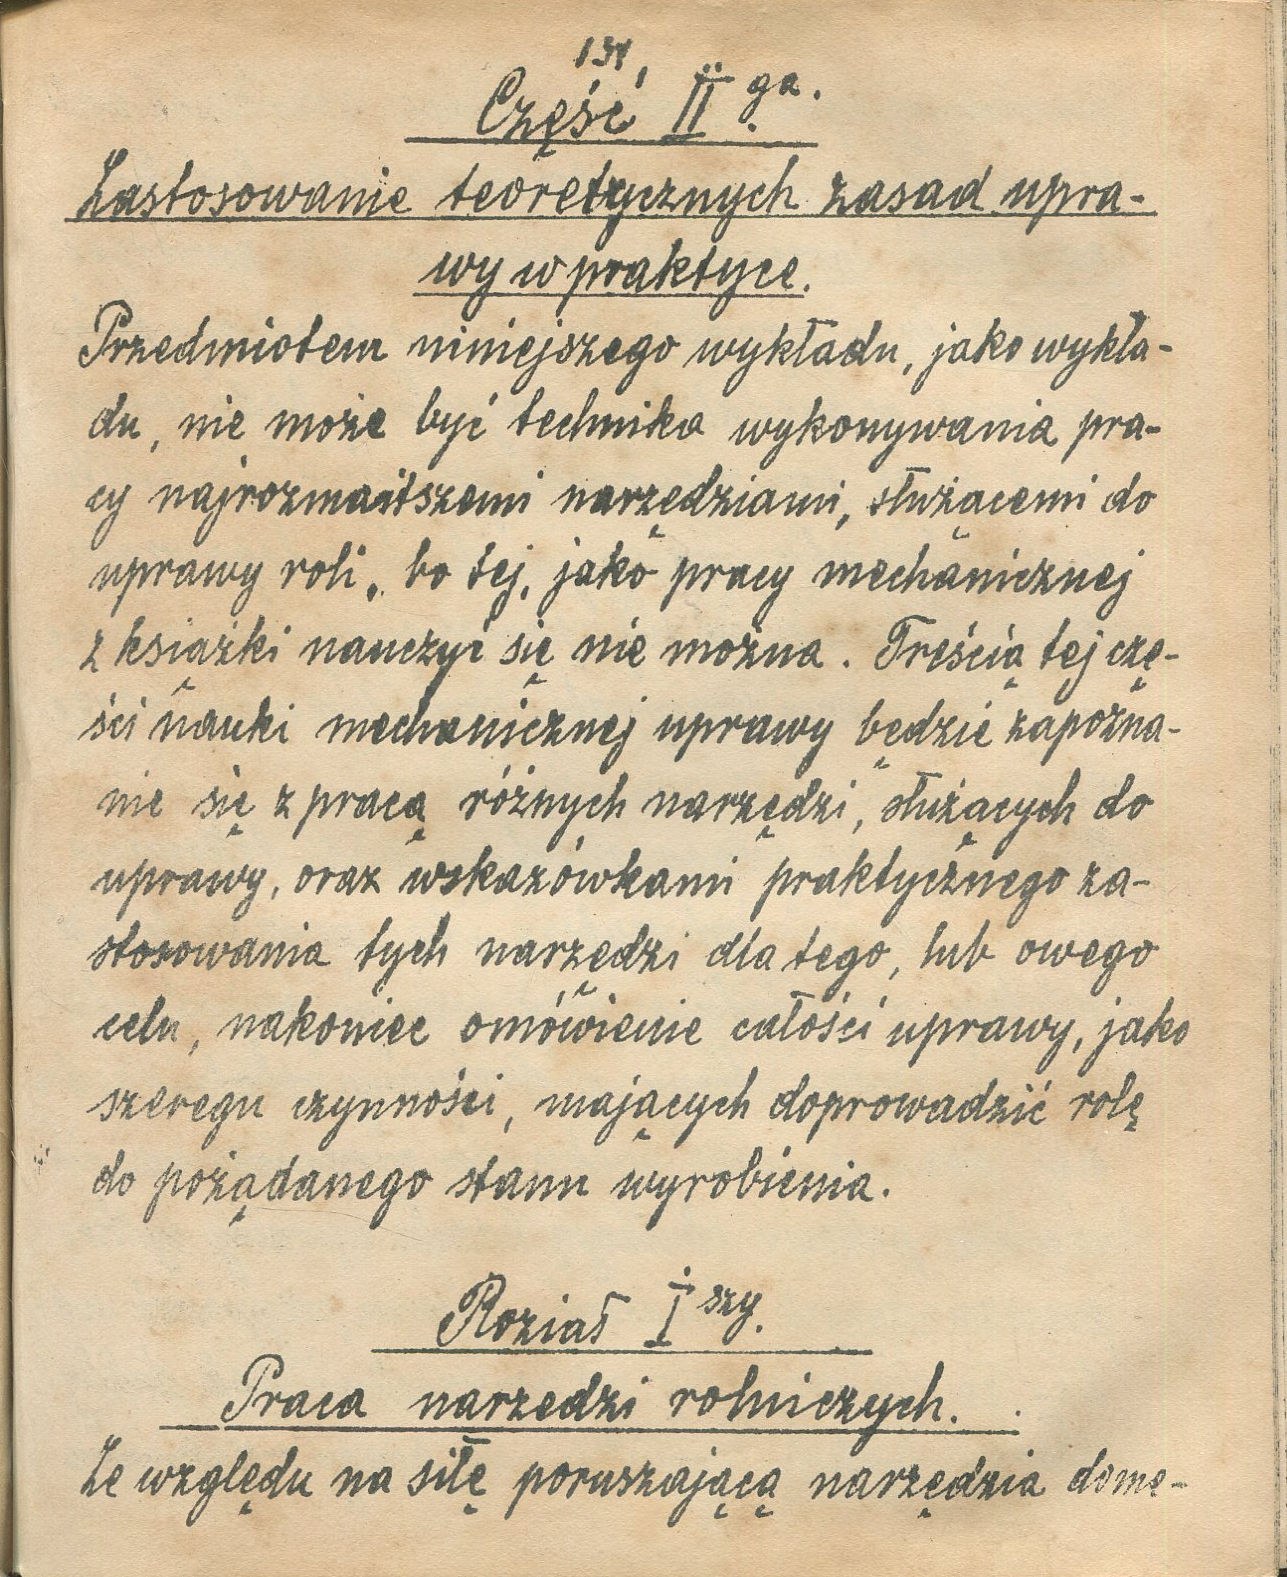 134,
Część II ga.
Zastosowanie teoretycznych zasad upra-
wy w praktyce.
Przedmiotem niniejszego wykładu, jako wykła-
du, nie może być technika wykonywania pra-
cy najrozmaitszemi narzędziami, służącemi do
uprawy roli, bo tej, jako pracy mechanicznej
z książki nauczyć się nie można. Treścią tej czę-
ści nauki mechanicznej uprawy będzie zapozna-
nie się z pracą różnych narzędzi, służących do
uprawy, oraz wskazówkami praktycznego za-
stosowania tych narzędzi dla tego, lub owego
celu, nakoniec omówienie całości uprawy, jako
szeregu czynności, mających doprowadzić rolę
do pożądanego stanu wyrobienia.
Roział I szy.
Praca narzędzi rolniczych.
Ze względu na siłę poruszającą narzędzia dome-